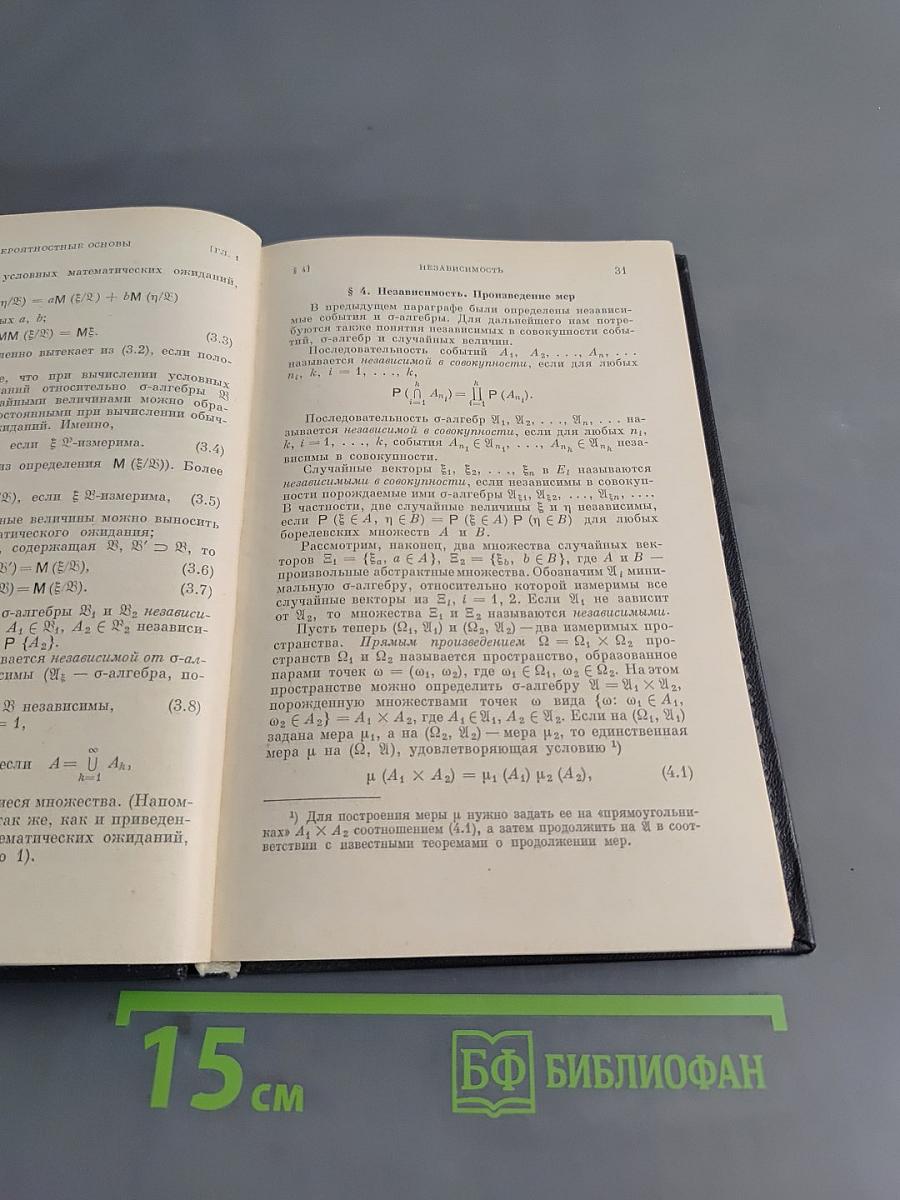 ЕРОЯТНОСТНЫЕ ОСНОВЫ [ГЛ. 1
условных математических ожиданий,
η/𝔅) = aM (ξ/𝔅) + bM (η/𝔅)
ых a, b;
MM (ξ/𝔅) = Mξ. (3.3)
ленно вытекает из (3.2), если поло-
е, что при вычислении условных
аний относительно σ-алгебры 𝔅
айными величинами можно обра-
остоянными при вычислении обыч-
жиданий. Именно,
если ξ 𝔅-измерима. (3.4)
из определения M (ξ/𝔅)). Более
/𝔅), если ξ 𝔅-измерима, (3.5)
ные величины можно выносить
атического ожидания;
, содержащая 𝔅, 𝔅′ ⊃ 𝔅, то
𝔅′) = M (ξ/𝔅), (3.6)
𝔅) = M (ξ/𝔅). (3.7)
σ-алгебры 𝔅₁ и 𝔅₂ независи-
A₁ ∈ 𝔅₁, A₂ ∈ 𝔅₂ независи-
P {A₂}.
вается независимой от σ-ал-
симы (𝔄ξ — σ-алгебра, по-
𝔅 независимы, (3.8)
= 1,
если A = ∞ ∪ k=1 Aₖ,
иеся множества. (Напом-
так же, как и приведен-
ематических ожиданий,
ю 1).
§ 4] НЕЗАВИСИМОСТЬ 31
§ 4. Независимость. Произведение мер
В предыдущем параграфе были определены независи-
мые события и σ-алгебры. Для дальнейшего нам потре-
буются также понятия независимых в совокупности собы-
тий, σ-алгебр и случайных величин.
Последовательность событий A₁, A₂, . . ., Aₙ, . . .
называется независимой в совокупности, если для любых
nᵢ, k, i = 1, . . ., k,
P (k ∩ i=1 Aₙᵢ) = k ∏ i=1 P (Aₙᵢ).
Последовательность σ-алгебр 𝔄₁, 𝔄₂, . . ., 𝔄ₙ, . . . на-
зывается независимой в совокупности, если для любых nᵢ,
k, i = 1, . . ., k, события Aₙ₁ ∈ 𝔄ₙ₁, . . ., Aₙₖ ∈ 𝔄ₙₖ неза-
висимы в совокупности.
Случайные векторы ξ₁, ξ₂, . . ., ξₙ в Eₗ называются
независимыми в совокупности, если независимы в совокуп-
ности порождаемые ими σ-алгебры 𝔄ξ₁, 𝔄ξ₂, . . ., 𝔄ξₙ, . . ..
В частности, две случайные величины ξ и η независимы,
если P (ξ ∈ A, η ∈ B) = P (ξ ∈ A) P (η ∈ B) для любых
борелевских множеств A и B.
Рассмотрим, наконец, два множества случайных век-
торов Ξ₁ = {ξₐ, a ∈ A}, Ξ₂ = {ξ_b, b ∈ B}, где A и B —
произвольные абстрактные множества. Обозначим 𝔄ᵢ мини-
мальную σ-алгебру, относительно которой измеримы все
случайные векторы из Ξᵢ, i = 1, 2. Если 𝔄₁ не зависит
от 𝔄₂, то множества Ξ₁ и Ξ₂ называются независимыми.
Пусть теперь (Ω₁, 𝔄₁) и (Ω₂, 𝔄₂) — два измеримых про-
странства. Прямым произведением Ω = Ω₁ × Ω₂ про-
странств Ω₁ и Ω₂ называется пространство, образованное
парами точек ω = (ω₁, ω₂), где ω₁ ∈ Ω₁, ω₂ ∈ Ω₂. На этом
пространстве можно определить σ-алгебру 𝔄 = 𝔄₁ × 𝔄₂,
порожденную множествами точек ω вида {ω: ω₁ ∈ A₁,
ω₂ ∈ A₂} = A₁ × A₂, где A₁ ∈ 𝔄₁, A₂ ∈ 𝔄₂. Если на (Ω₁, 𝔄₁)
задана мера μ₁, а на (Ω₂, 𝔄₂) — мера μ₂, то единственная
мера μ на (Ω, 𝔄), удовлетворяющая условию ¹)
μ (A₁ × A₂) = μ₁ (A₁) μ₂ (A₂), (4.1)
¹) Для построения меры μ нужно задать ее на «прямоугольни-
ках» A₁ × A₂ соотношением (4.1), а затем продолжить на 𝔄 в соот-
ветствии с известными теоремами о продолжении мер.
15 см
БФ БИБЛИОФАН